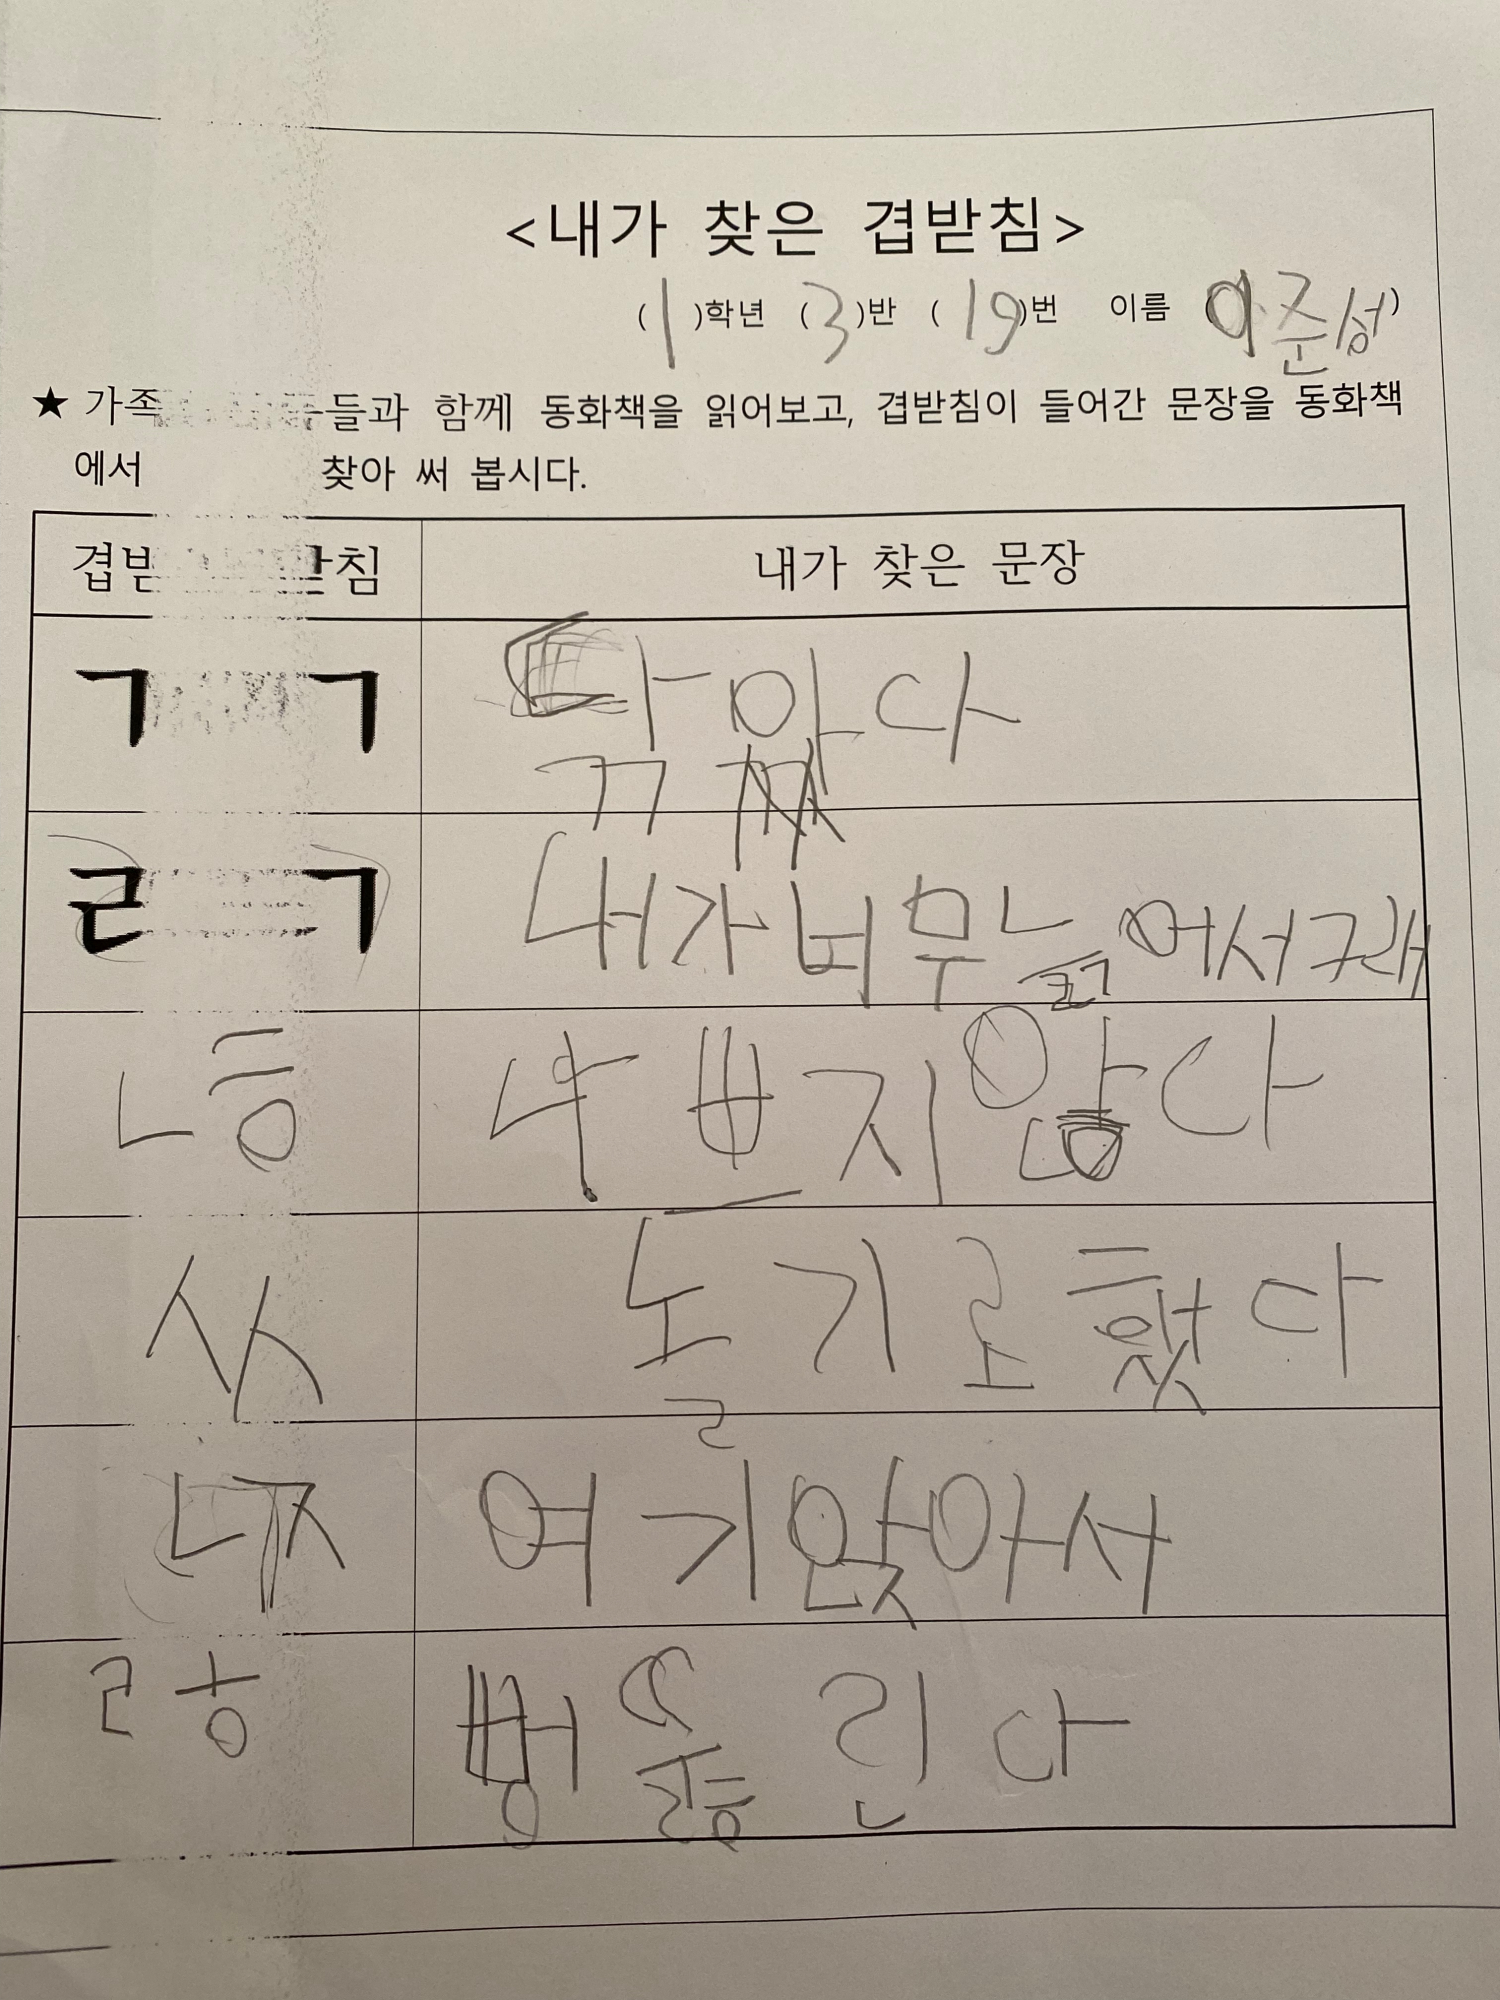 <내가 찾은 겹받침>
( 1 )학년 ( 3 )반 ( 19 )번 이름 ( 이준성 )
★ 가족 들과 함께 동화책을 읽어보고, 겹받침이 들어간 문장을 동화책
에서 찾아 써 봅시다.
겹받 받침 내가 찾은 문장
ㄱ ㄱ 닦았다
ㄹ ㄱ 내가 너무 늙어서 그래
ㄴㅎ 나쁘지 않다
ㅆ 놀기로 했다
ㄵ 여기 앉아서
ㄹㅎ 린다